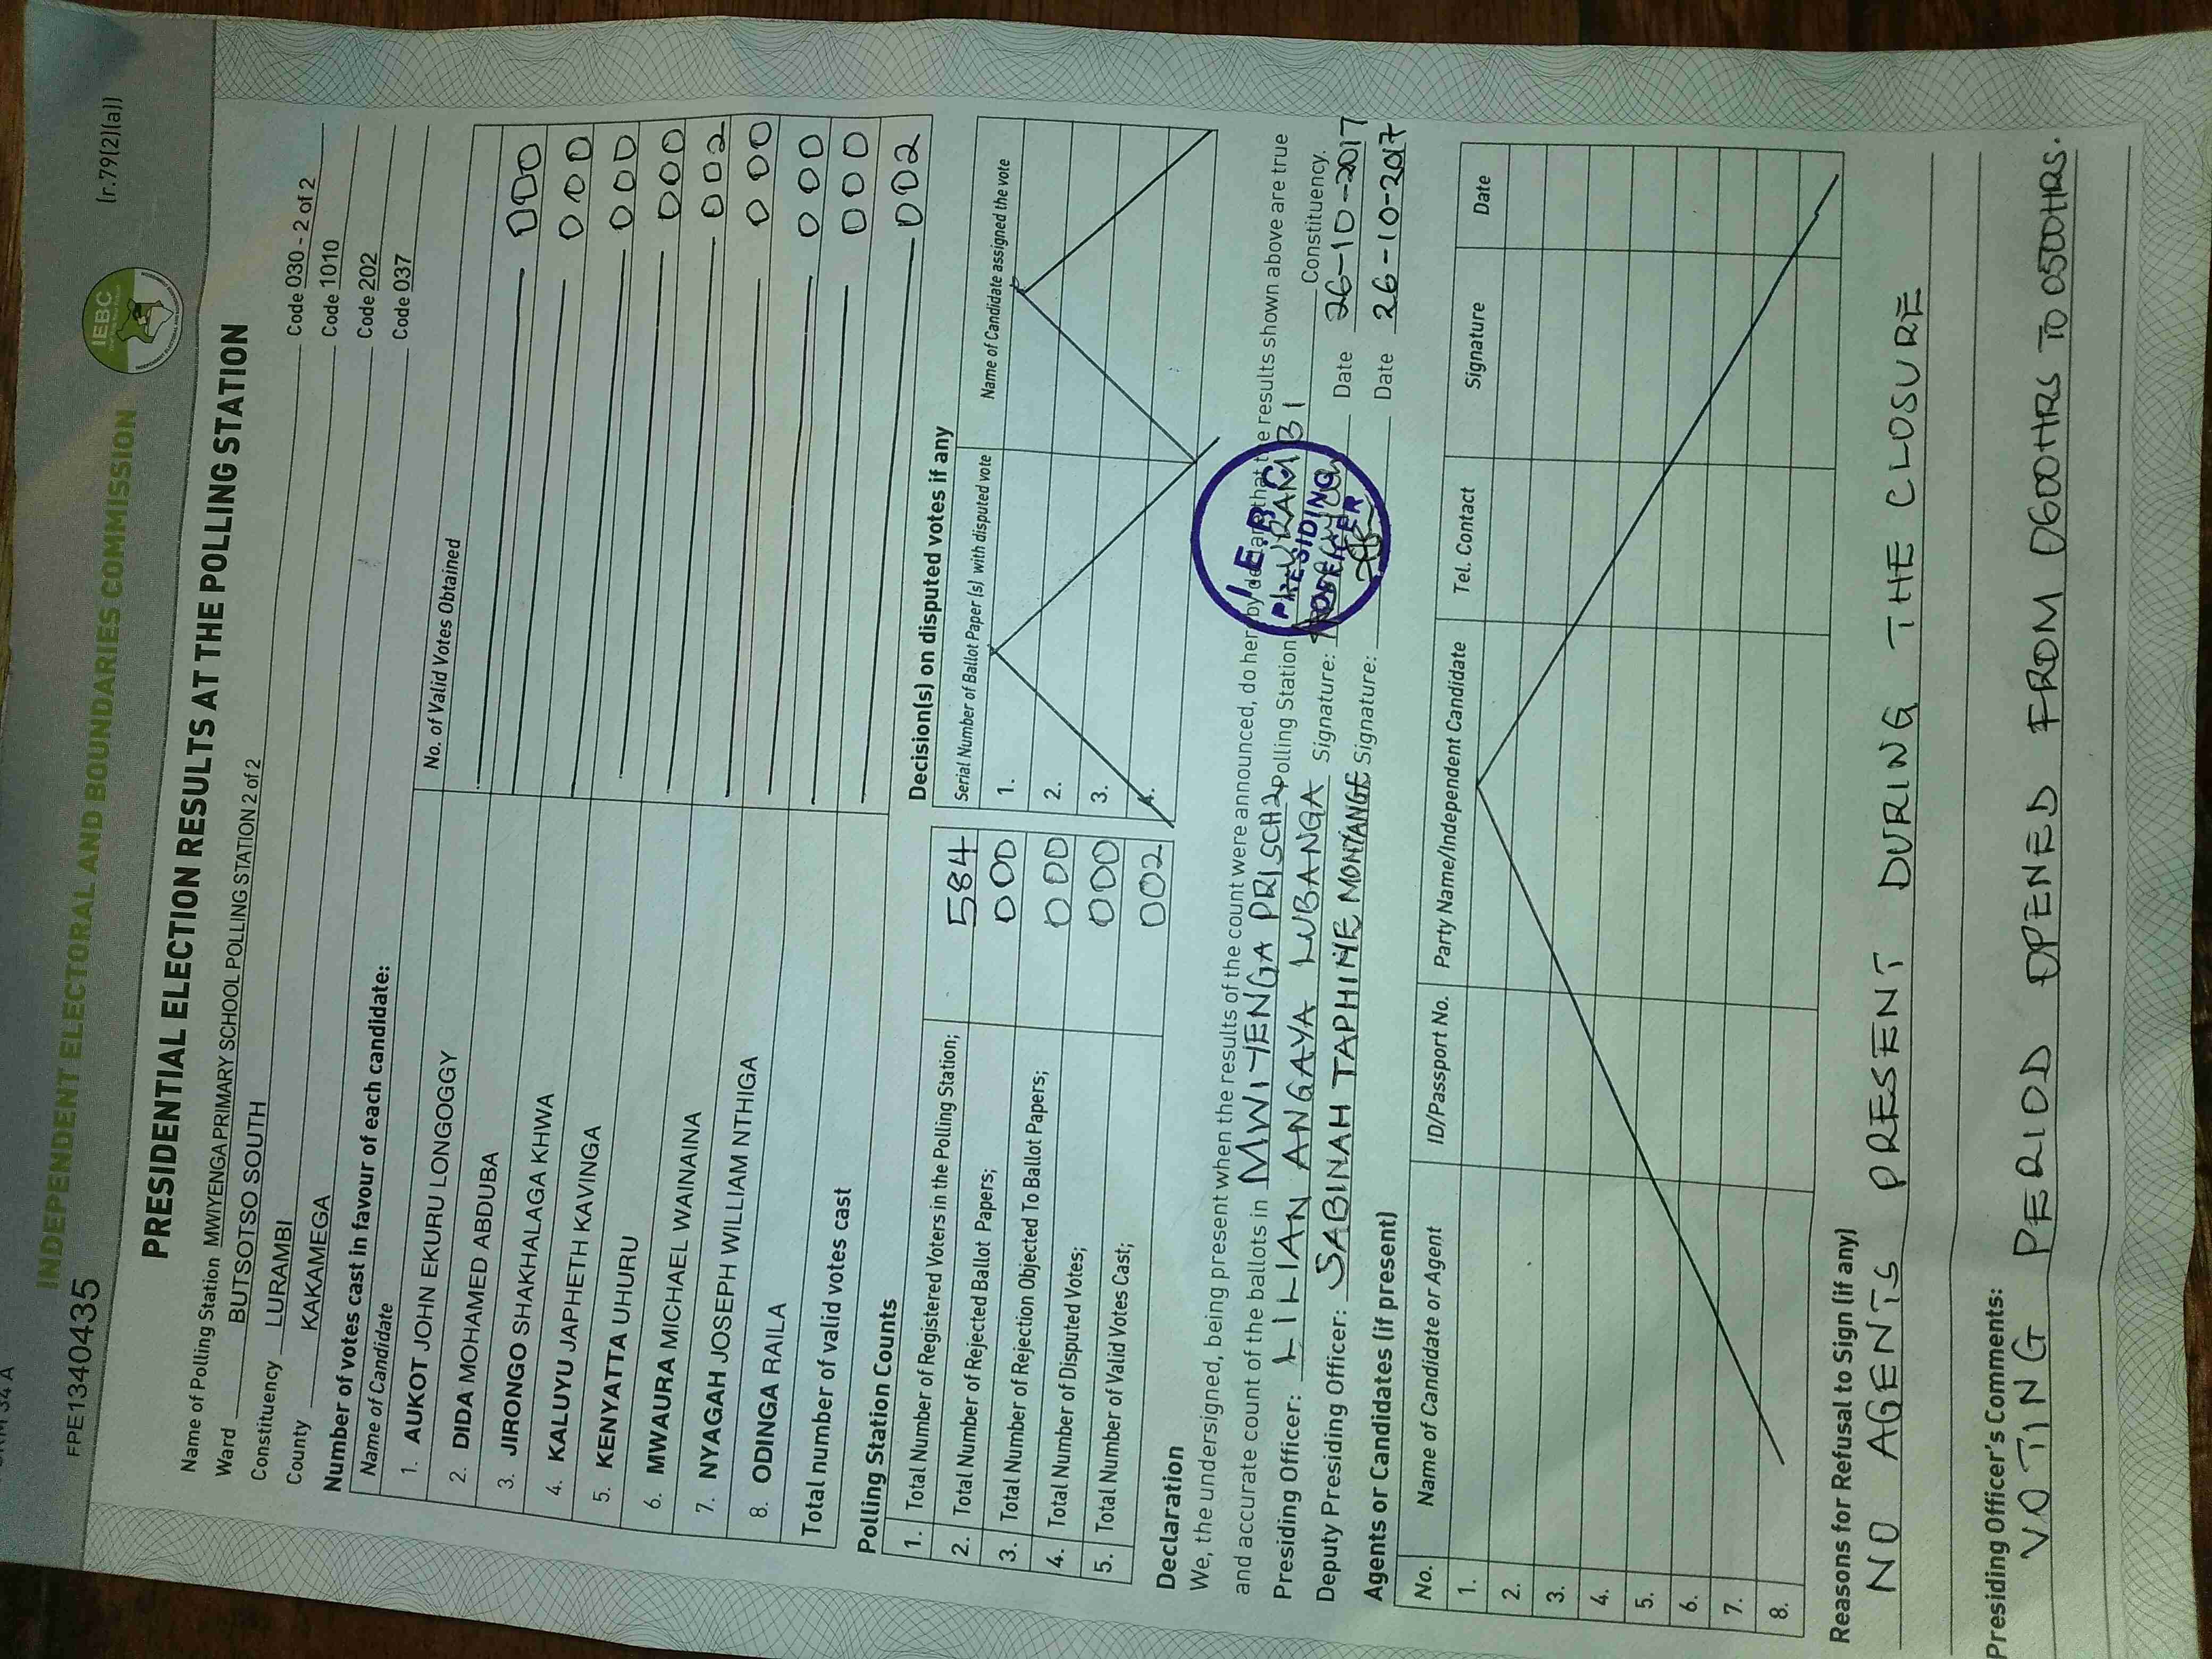 INDEPENDENT ELECTORAL AND BOUNDARIES COMMISSION
IEBC
(r.79(2)(a))
FPE1340435
PRESIDENTIAL ELECTION RESULTS AT THE POLLING STATION
Name of Polling Station MWIYENGA PRIMARY SCHOOL POLLING STATION 2 of 2 Code 030 - 2 of 2
Ward BUTSOTSO SOUTH Code 1010
Constituency LURAMBI Code 202
County KAKAMEGA Code 037
Number of votes cast in favour of each candidate:
Name of Candidate No. of Valid Votes Obtained
1. AUKOT JOHN EKURU LONGOGGY 000
2. DIDA MOHAMED ABDUBA 000
3. JIRONGO SHAKHALAGA KHWA 000
4. KALUYU JAPHETH KAVINGA 000
5. KENYATTA UHURU 002
6. MWAURA MICHAEL WAINAINA 000
7. NYAGAH JOSEPH WILLIAM NTHIGA 000
8. ODINGA RAILA 000
Total number of valid votes cast 002
Polling Station Counts
1. Total Number of Registered Voters in the Polling Station; 584
2. Total Number of Rejected Ballot Papers; 000
3. Total Number of Rejection Objected To Ballot Papers; 000
4. Total Number of Disputed Votes; 000
5. Total Number of Valid Votes Cast; 002
Decision(s) on disputed votes if any
Serial Number of Ballot Paper (s) with disputed vote Name of Candidate assigned the vote
1.
2.
3.
4.
Declaration
We, the undersigned, being present when the results of the count were announced, do hereby declare that the results shown above are true
and accurate count of the ballots in MWIYENGA PRI SCH 2 Polling Station LURAMBI Constituency.
Presiding Officer: LILIAN ANGAYA LUBANGA Signature: Date 26-10-2017
Deputy Presiding Officer: SABINAH TAPHINE MONYANGE Signature: Date 26-10-2017
I.E.B.C.
PRESIDING
OFFICER
Agents or Candidates (if present)
No. Name of Candidate or Agent ID/Passport No. Party Name/Independent Candidate Tel. Contact Signature Date
1.
2.
3.
4.
5.
6.
7.
8.
Reasons for Refusal to Sign (if any)
NO AGENTS PRESENT DURING THE CLOSURE
Presiding Officer's Comments:
VOTING PERIOD OPENED FROM 0600HRS TO 0500HRS.